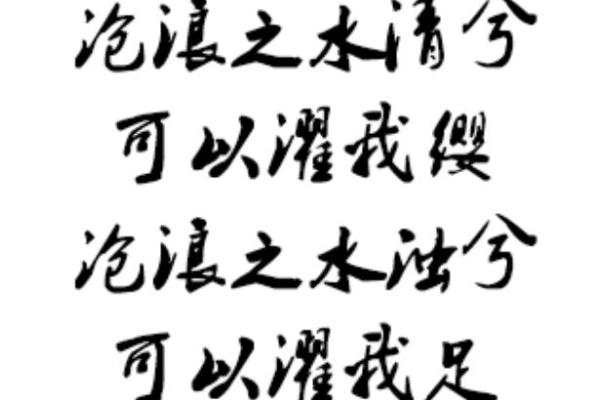 沧浪之水清兮
可以濯我缨
沧浪之水浊兮
可以濯我足